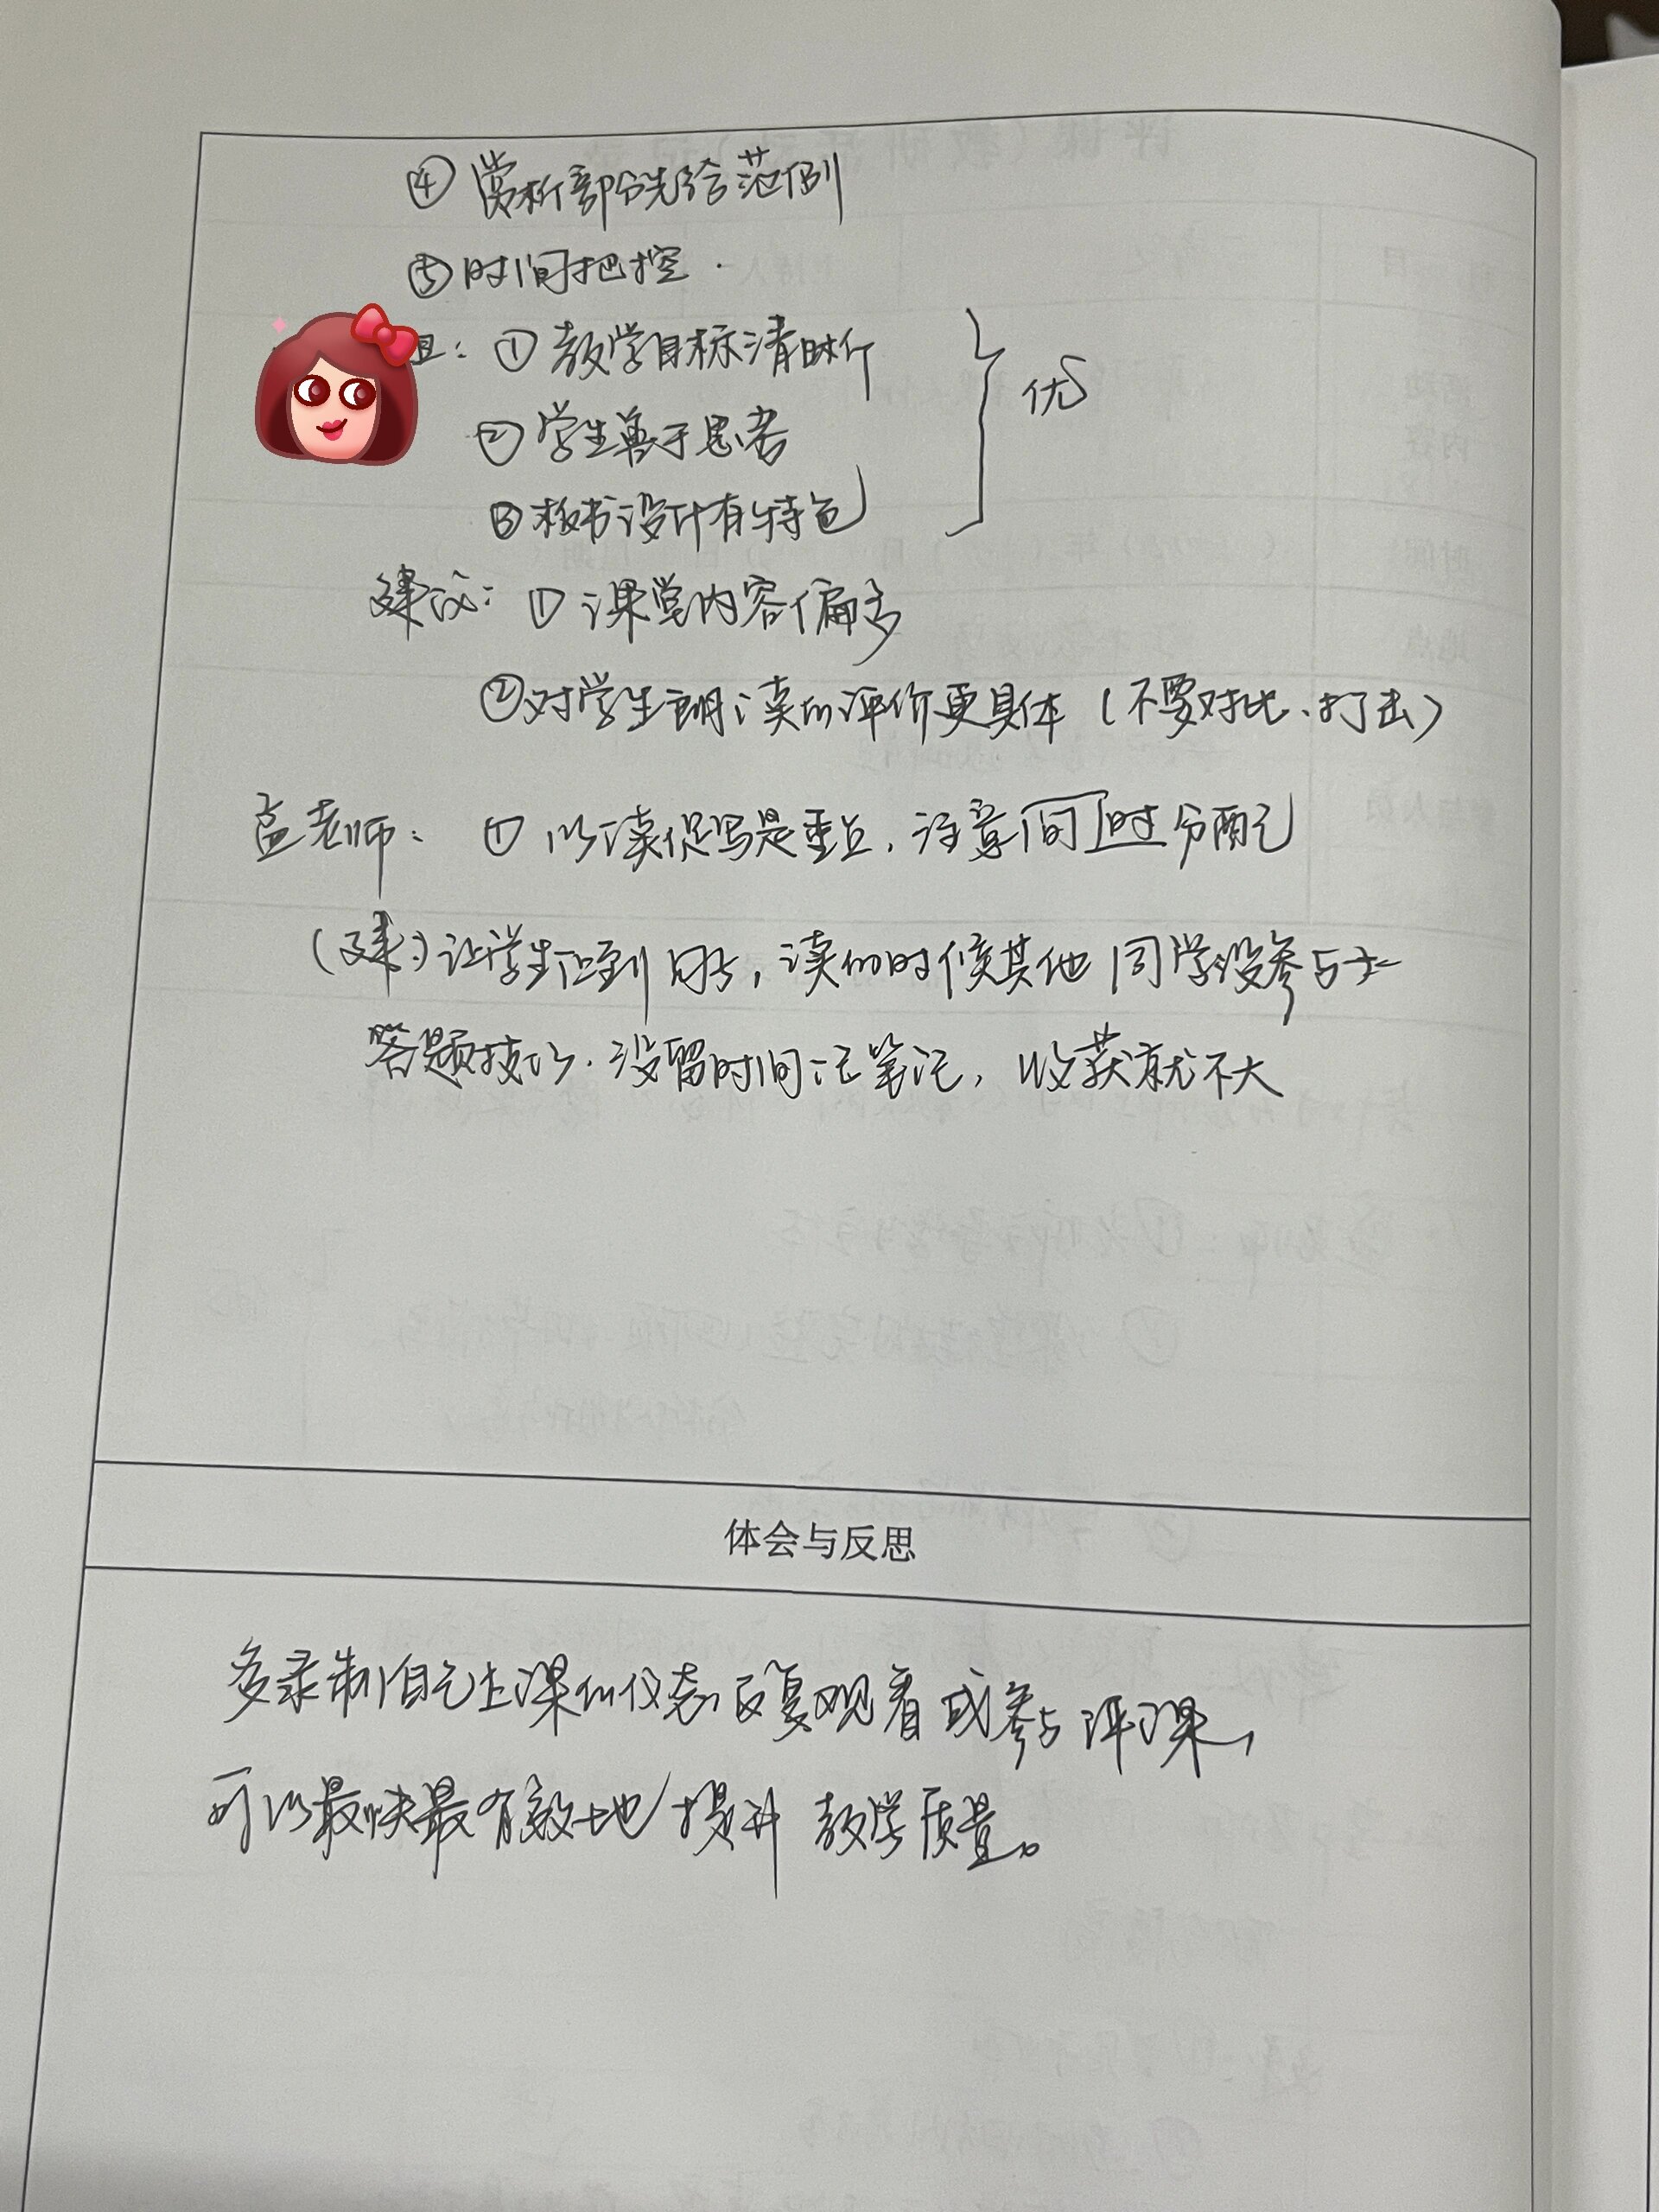 ④ 赏析部分先给范例
⑤ 时间把控.
且: ① 教学目标清晰
② 学生善于思考
③ 板书设计有特色
优
建议: ① 课堂内容偏多
② 对学生朗读的评价更具体 (不要对比、打击)
孟老师: ① 以读促写是重点, 注意间时分配
(建:) 让学生 到, 读的时候其他同学没参与
答题技巧. 没留时间记笔记, 收获就不大
体会与反思
多录制自己上课的仪态,反复观看或参与评课,
可以最快最有效地提升教学质量。